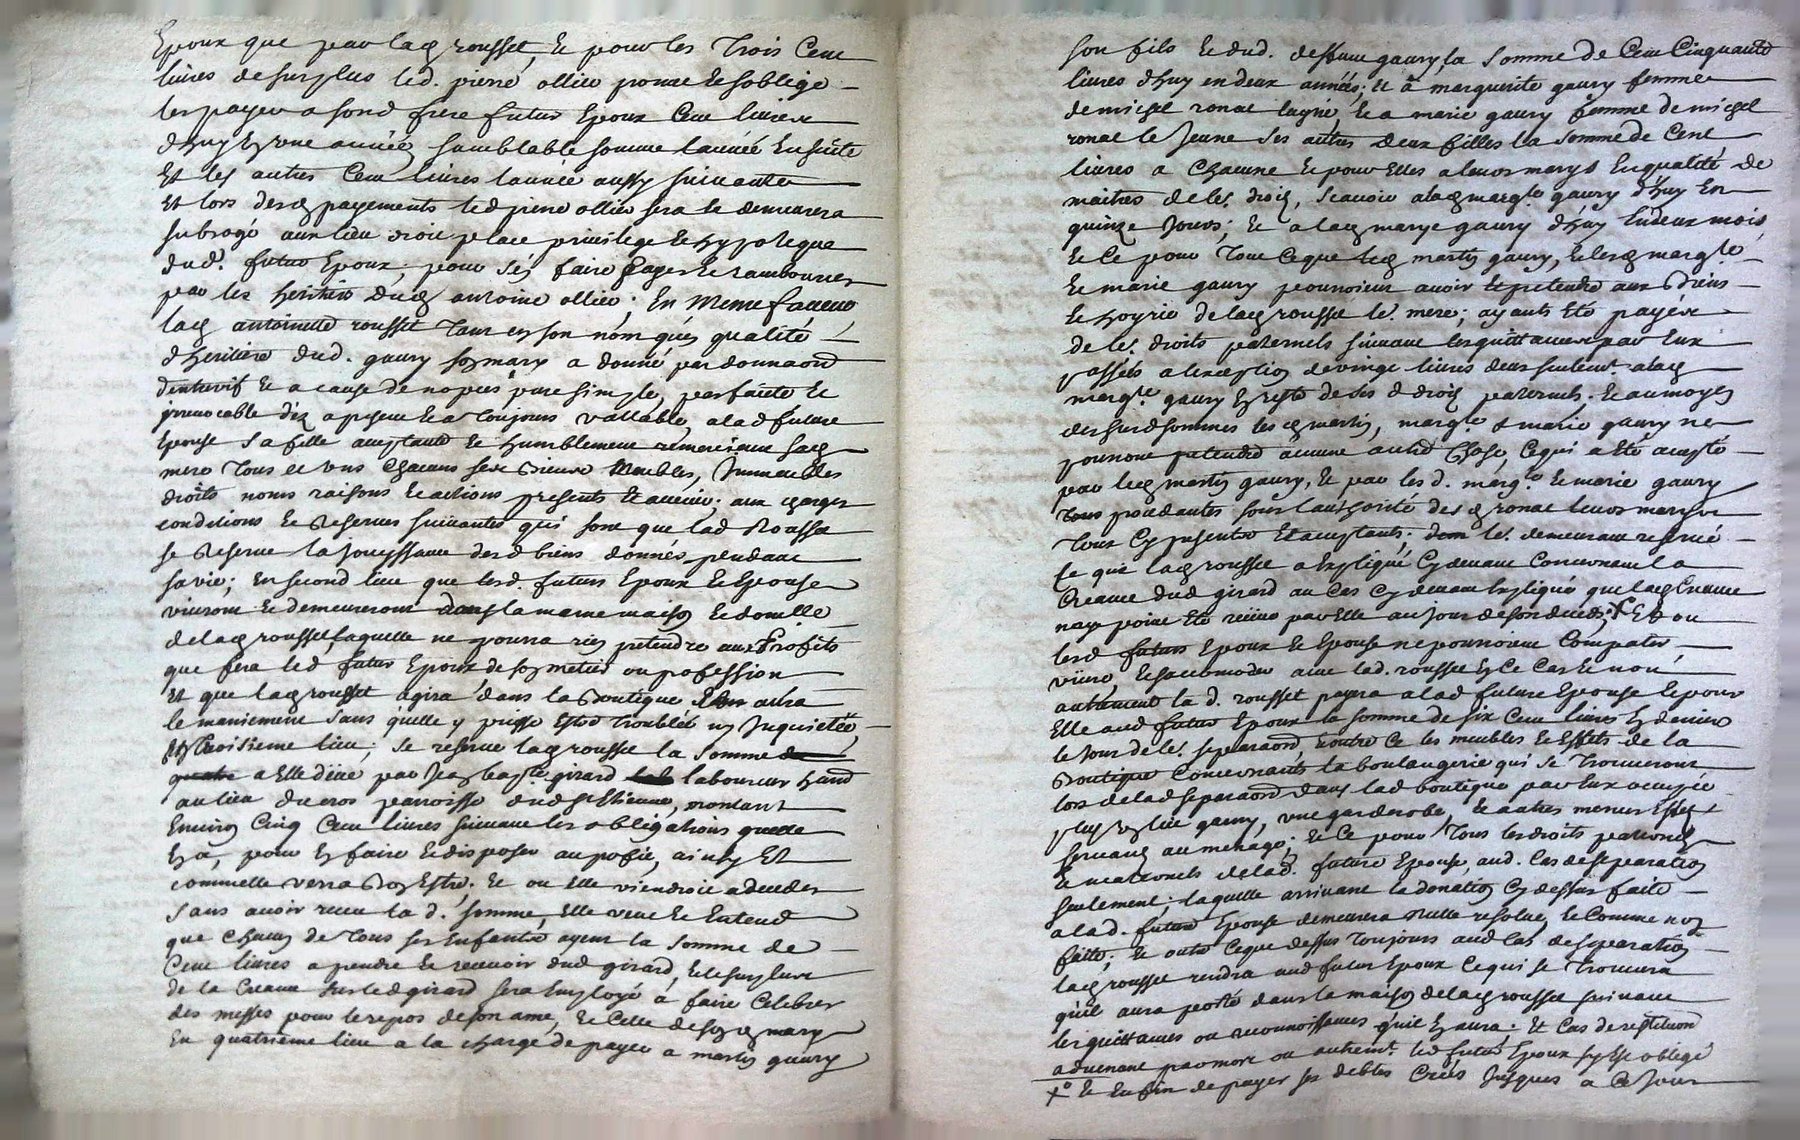 Epoux que par lad rousset, Et pour les Trois Cent
livres de surplus led. pierre ollier promet Et soblige
les payer a sond frere futur Epoux Cent livres
d'huy En une année, semblable somme l'année Ensuite
Et les autres Cent livres l'année aussy suivante
Et lors desd payements led pierre ollier sera Et demeurera
subrogé aux lieu droit place privilege Et hypoteque
dud. futur Epoux, pour s'en faire payer Et rambourcer
par les heritiers dud antoine ollier; En Meme faveur
lad antoinette rousset Tant en son nom que qualité
d'heritiere dud. gaury son mary a donné par donnaon
d'entrevif Et a cause de nopces pure simple, parfaite Et
irrevocable dez apresent Et a Toujours vallable, a lad future
Epouse sa fille acceptante Et humblement remerciant sad
mere Tous Et uns Chacuns ses Biens Meubles, Immeubles
droits noms raisons Et actions presents Et avenir; aux charges
conditions Et Reserves suivantes qui sont que lad Rousset
se Reserve la jouyssance desd biens donnés pendant
sa vie; En second lieu que lesd. futurs Epoux Et Epouse
vivront Et demeureront dans la meme maison Et domille
de lad rousset, laquelle ne pourra rien pretendre aux Profits
que fera led futur Epoux de son metier ou profession
Et que lad rousset agira dans la Boutique
le maniement sans quelle y puisse Estre Troublée ny Inquietée,
En Troisieme lieu; se reserve lad rousset la somme
a Elle düe par Jean bapte girard laboureur
au lieu du cros parroisse dud St Etienne, montant
Environ Cinq Cent livres suivant les obligations quelle
En a, pour En faire Et disposer au profit, ainsy Et
comme elle verra Bon Estre; Et ou Elle viendroit a deceder
sans avoir receu la d. somme, Elle veut Et Entend
que Chacun de Tous ses Enfants ayent la somme de
Cent livres a prendre Et recevoir dud girard, Et le surplus
de la Creance sur led girard sera Employé a faire Celebrer
des messes pour le repos de son ame, Et Celle de sond mary
En quatrieme lieu a la charge de payer a martin gaury
son fils Et dud. deffunt gaury, la somme de Cent Cinquante
livres d'huy en deux années; Et a marguerite gaury femme
de michel ronat l'ayné, Et a marie gaury femme de michel
ronat le Jeune ses autres deux filles la somme de Cent
livres a Chacune Et pour Elles a leurs marys En qualité de
maitres de les. droits, scavoir a lad margte gaury d'huy En
quinze Jours; Et a lad marye gaury d'huy En deux mois,
Et Ce pour Tout Ceque led martin gaury, Et lesd margte
Et marie gaury pourroient avoir Et pretendre aux Biens
Et hoyrie de lad rousset le. mere; ayants Eté payés
de les. droits paternels suivant les quittances par Eux
passées a l'exception de vingt livres deues seulemt. a lad
margte gaury En reste de ses d droits paternels; Et au moyen
des susd sommes lesd martin, margte & marie gaury ne
pourront pretendre aucune autre Chose, Cequi a Eté accepté
par led martin gaury, Et par les d. margte Et marie gaury
procedantes sous l'authorité desd ronat leurs marys
Tous Cy presents Et acceptants; dem le. demeurant reservé
Ce que lad rousset a Expliqué Cy devant Concernant la
Creance dud girard au Cas Cy devant Expliqué que lad Creance
naye point Eté reçüe par Elle au Jour de son decés; X Et ou
lesd futurs Epoux Et Epouse ne pourroient Compatir,
vivre Et saccomoder avec lad. rousset En Ce Cas Et non
autrement la d. rousset payera a lad future Epouse Et pour
Elle aud futur Epoux la somme de six Cent livres En deniers
le Jour de le. separaon, Et outre Ce les meubles Et Effets de la
Boutique Concernants la boulangerie qui se Trouveront
lors de lad separaon dans lad boutique par Eux occupée
plus un lit garny, une garderobe, Et autres menus Effets
servants au menage; Et Ce pour Tous les droits paternels
Et maternels de lad. future Epouse, aud. Cas de separation
seulement; laquelle arrivant la donation Cy dessus faite
a la d. future Epouse demeurera Nulle resolue, Et Comme non
faite; Et outre Ceque dessus Toujours aud Cas de separation
lad rousset rendra aud futur Epoux Cequi se Trouvera
quil aura porté dans la maison de lad rousset suivant
les quittances ou reconnoissances qu'il En aura: Et Cas de restituon
advenant par mort ou autremt. led futur Epoux sy Est obligé
X Et Enfin de payer ses debtes Créés Jusques a Ce Jour